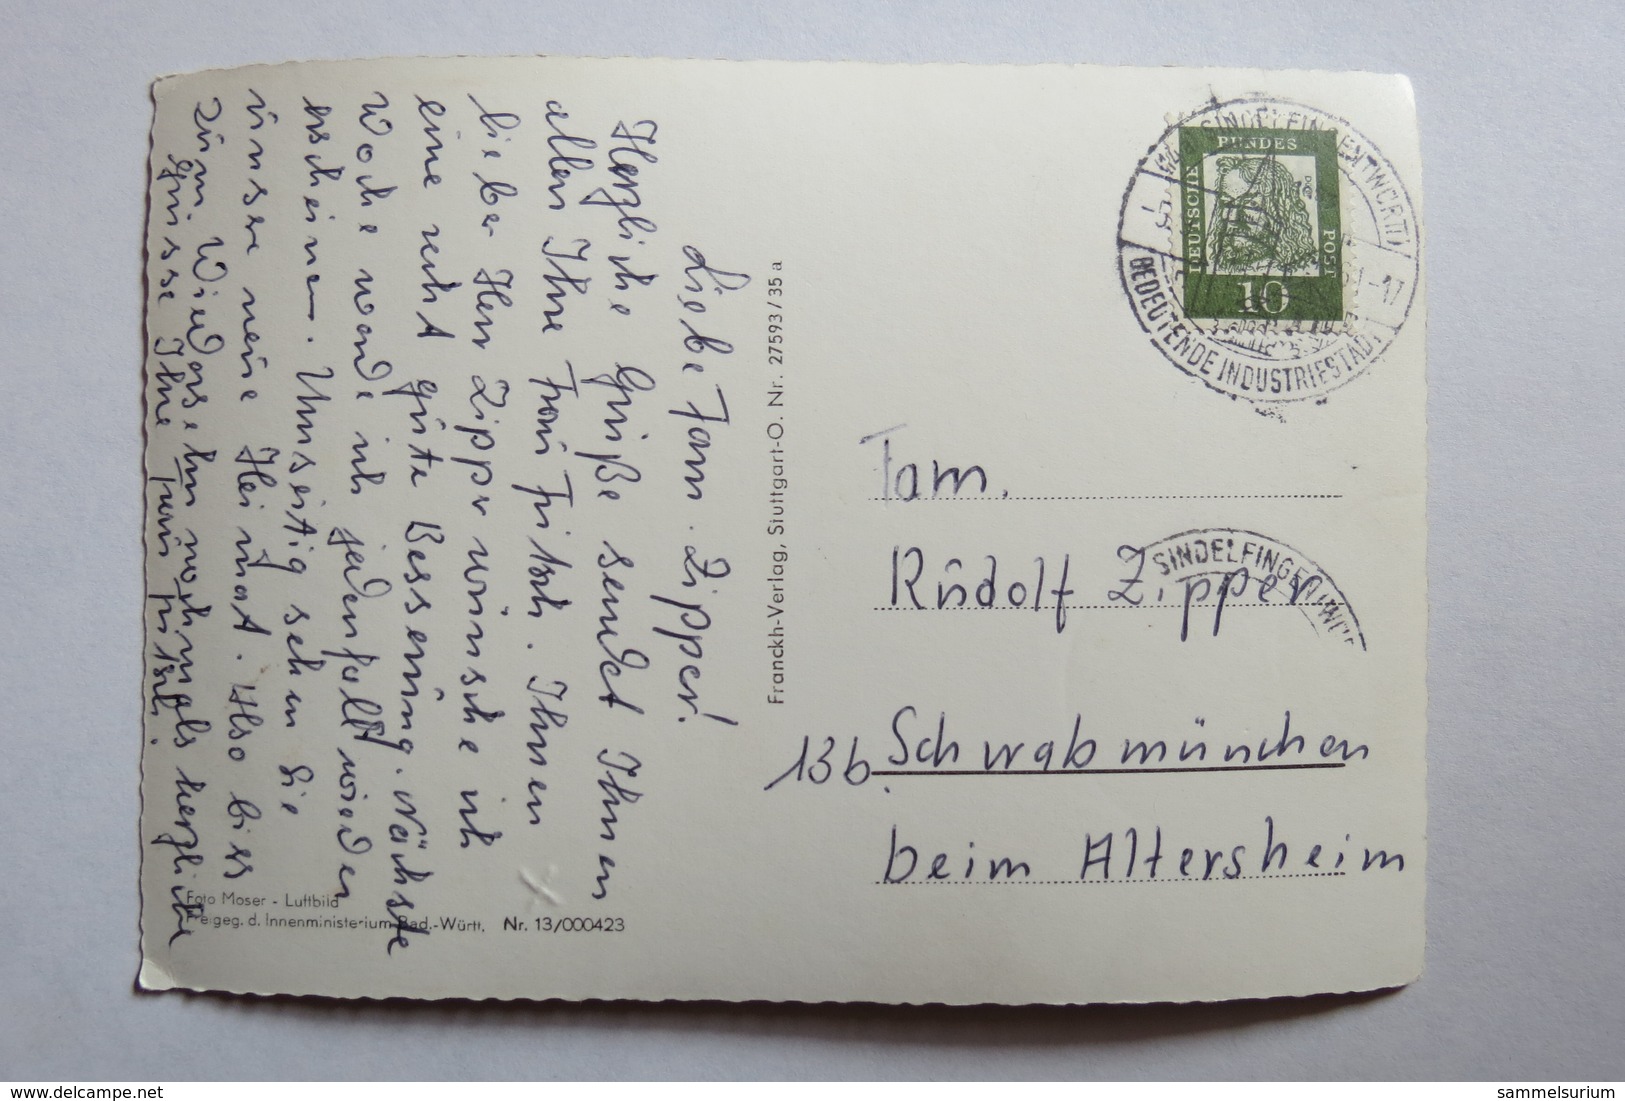 Liebe Fam. Zipper!
Herzliche Grüße sendet Ihnen
allen Ihre Frau Fritsch. Ihnen
lieber Herr Zipper wünsche ich
eine recht gute Besserung. Nächste
Woche werde ich jedenfalls wieder
erscheinen. Umseitig sehen Sie
unsere neue Heimat. Also bis
zum Wiedersehn nochmals herzliche
Grüsse Ihre Frau Fritsch.
Foto Moser - Luftbild
Freigeg. d. Innenministerium Bad.-Württ. Nr. 13/000423
Franckh-Verlag, Stuttgart-O. Nr. 27593/35 a
DEUTSCHE
BUNDES
POST
10
SINDELFINGEN
-17
BEDEUTENDE INDUSTRIESTADT
Fam.
Rudolf Zipper
SINDELFINGEN
13b. Schwabmünchen
beim Altersheim
sammelsurium@delcampe.net